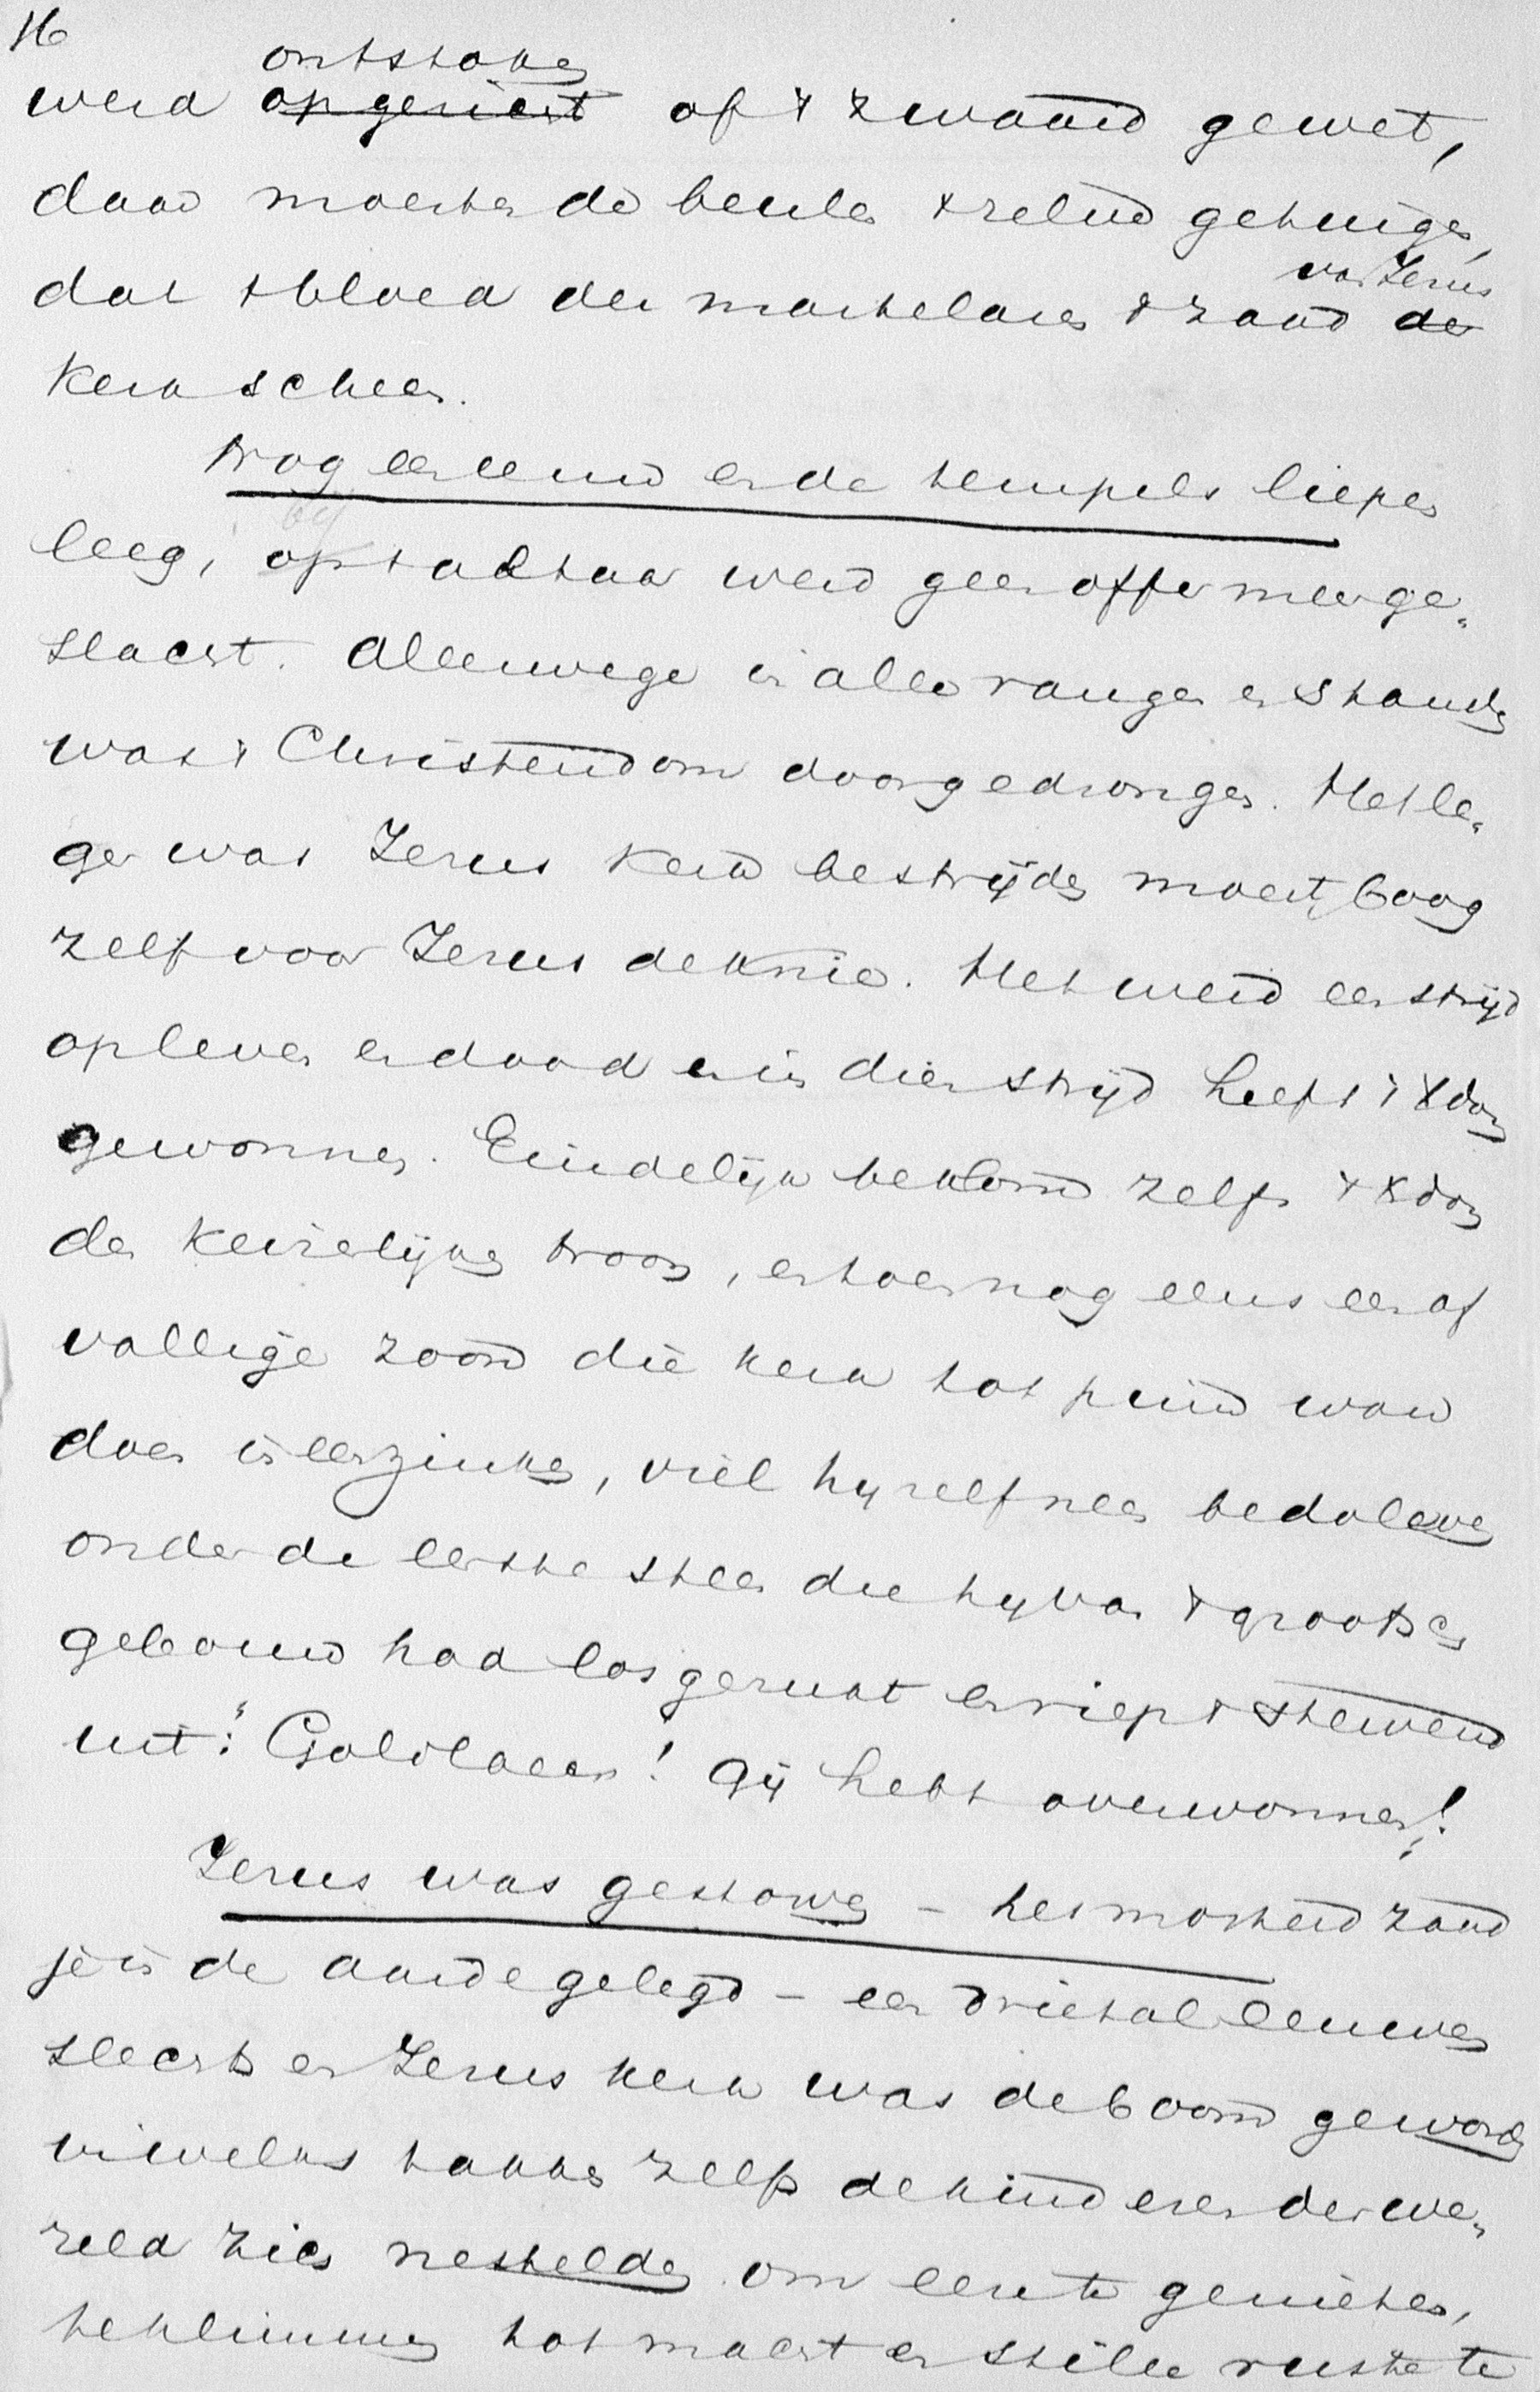 16
ontstoken
werd opgericht of 't zwaard gewet,
daar moesten de beulen 't zelve getuigen,
van Jezus
dat 't bloed der martelaren 't zaad der
kerk scheen.
Nog een eeuw en de tempels liepen
leeg, op 't altaar werd geen offer meer ge-
slacht. Allerwege in alle rangen en standen
was 't Christendom doorgedrongen. Het le-
ger wat Jezus kerk bestrijden moest, boog
zelf voor Jezus de knie. Het werd een strijd
op leven en dood en in dien strijd heeft 't Xdom
gewonnen. Eindelijk beklom zelfs 't Xdom
den keizerlijken troon, en toen nog eens een af
vallige zoon die kerk tot puin wou
doen ineenzinken, viel hij zelf neer bedolven
onder de eerste steen die hij van 't grootsche
gebouw had losgerukt en riep 't stervend
uit: "Galileer! Gij hebt overwonnen!"
Jezus was gestorven – het mosterdzaad
je in de aarde gelegd – een drietal eeuwen
slechts en Jezus kerk was de boom geworden
in welks takken zelfs de kinderen der we-
reld zich nestelden om eer te genieten,
te klimmen tot macht en stille rust te